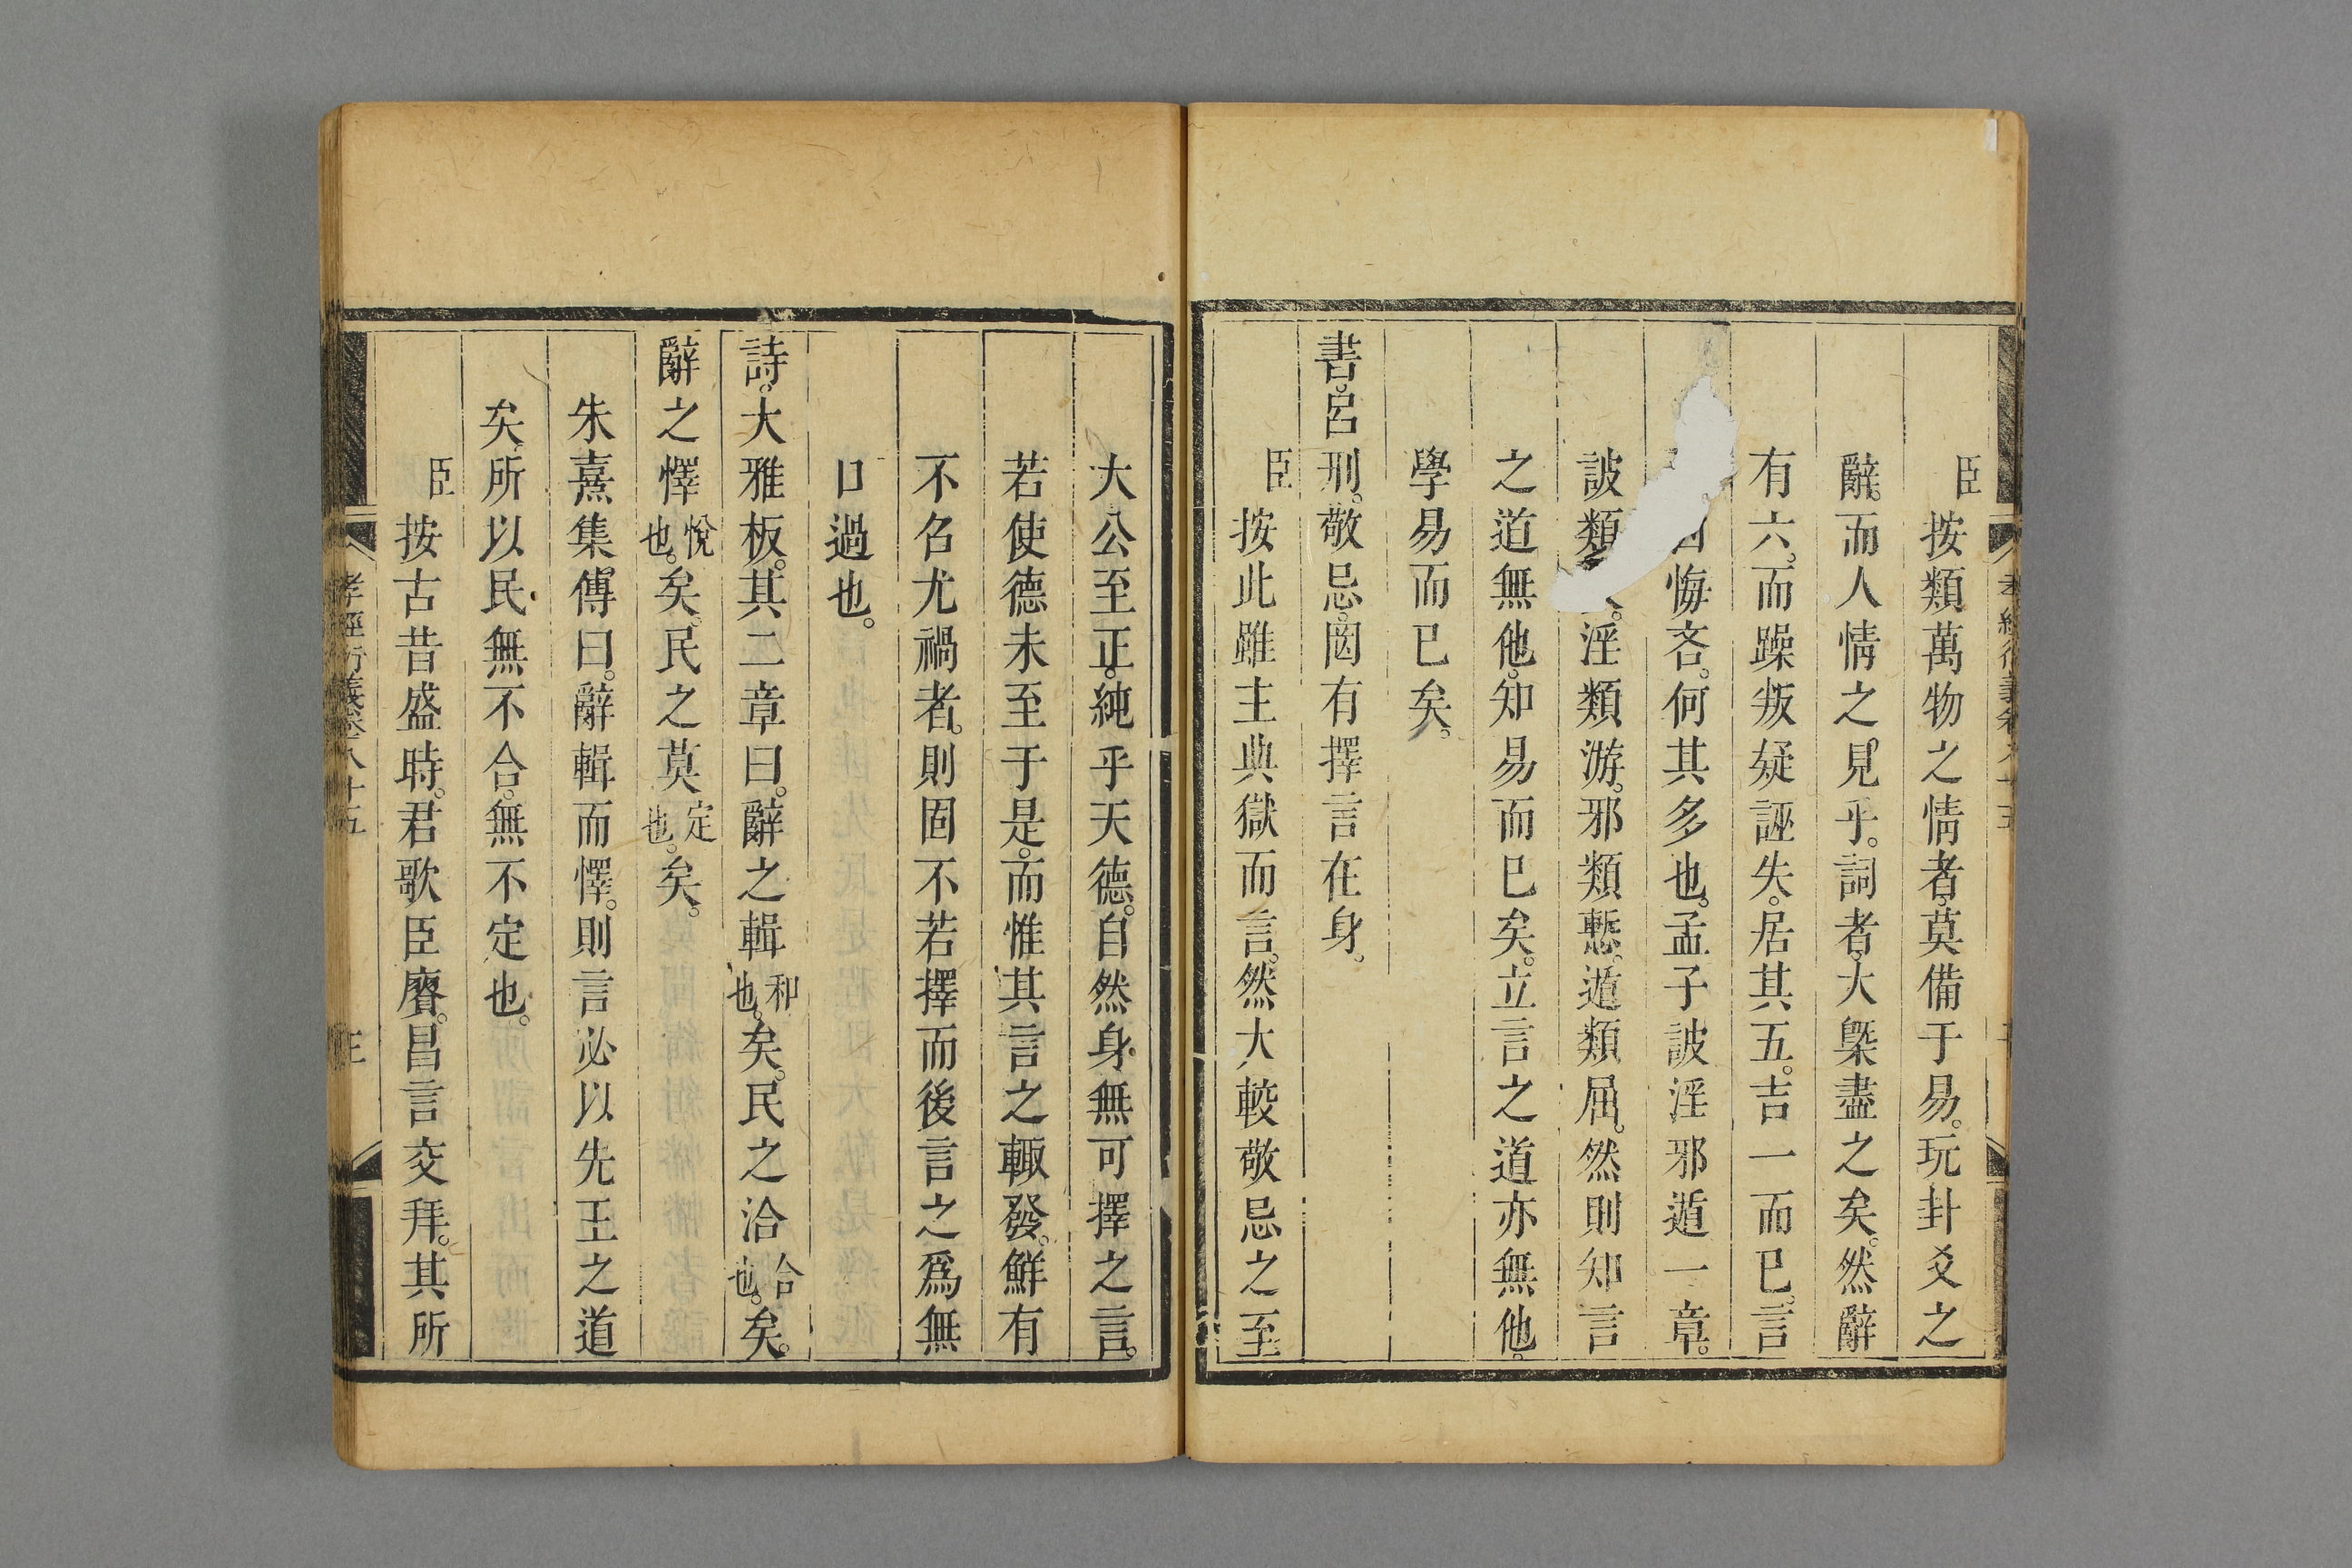 臣按類萬物之情者。莫備于易。玩卦爻之
辭。而人情之見乎。詞者。大槩盡之矣。然辭
有六。而躁叛疑誣失。居其五。吉一而已。言
悔吝。何其多也。孟子詖淫邪遁一章。
詖類。淫類游。邪類慙。遁類屈。然則知言
之道無他。知易而已矣。立言之道亦無他。
學易而已矣。
書。呂刑。敬忌。罔有擇言在身。
臣按此雖主典獄而言。然大較敬忌之至
大公至正。純乎天德。自然身無可擇之言。
若使德未至于是。而惟其言之輙發。鮮有
不名尤禍者。則固不若擇而後言之爲無
口過也。
詩。大雅板。其二章曰。辭之輯和也。矣。民之洽合也。矣。
辭之懌悅也。矣。民之莫定也。矣。
朱熹集傳曰。辭輯而懌。則言必以先王之道
矣。所以民無不合。無不定也。
臣按古昔盛時。君歌臣賡。昌言交拜。其所
孝經衍義卷八十五